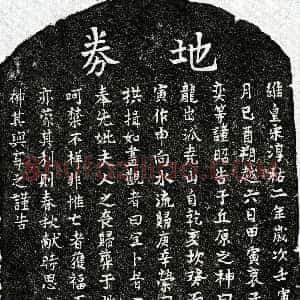 地券
維皇宋淳祐二年歲次壬寅
月己酉朔越六日甲寅哀
奕等謹昭告于丘原之神
龍出派堯山自乾亥坎癸
寅作申向水流歸庚辛榮
拱揖如畫觀者曰宜卜
奉先妣夫人之喪歸窆于
呵禁不祥非惟亡者獲福
亦蒙其利則春秋献時思
神其與享之謹告